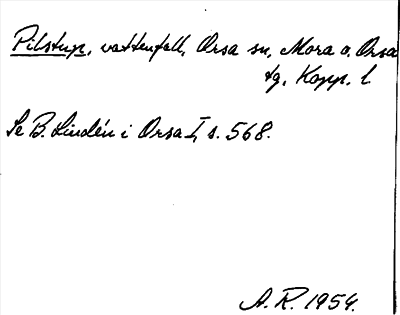 Pilstup, vattenfall, Orsa sn, Mora o. Orsa
tg, Kopp. l
Se B. Lindén i Orsa I, s. 568.
A. R. 1954.